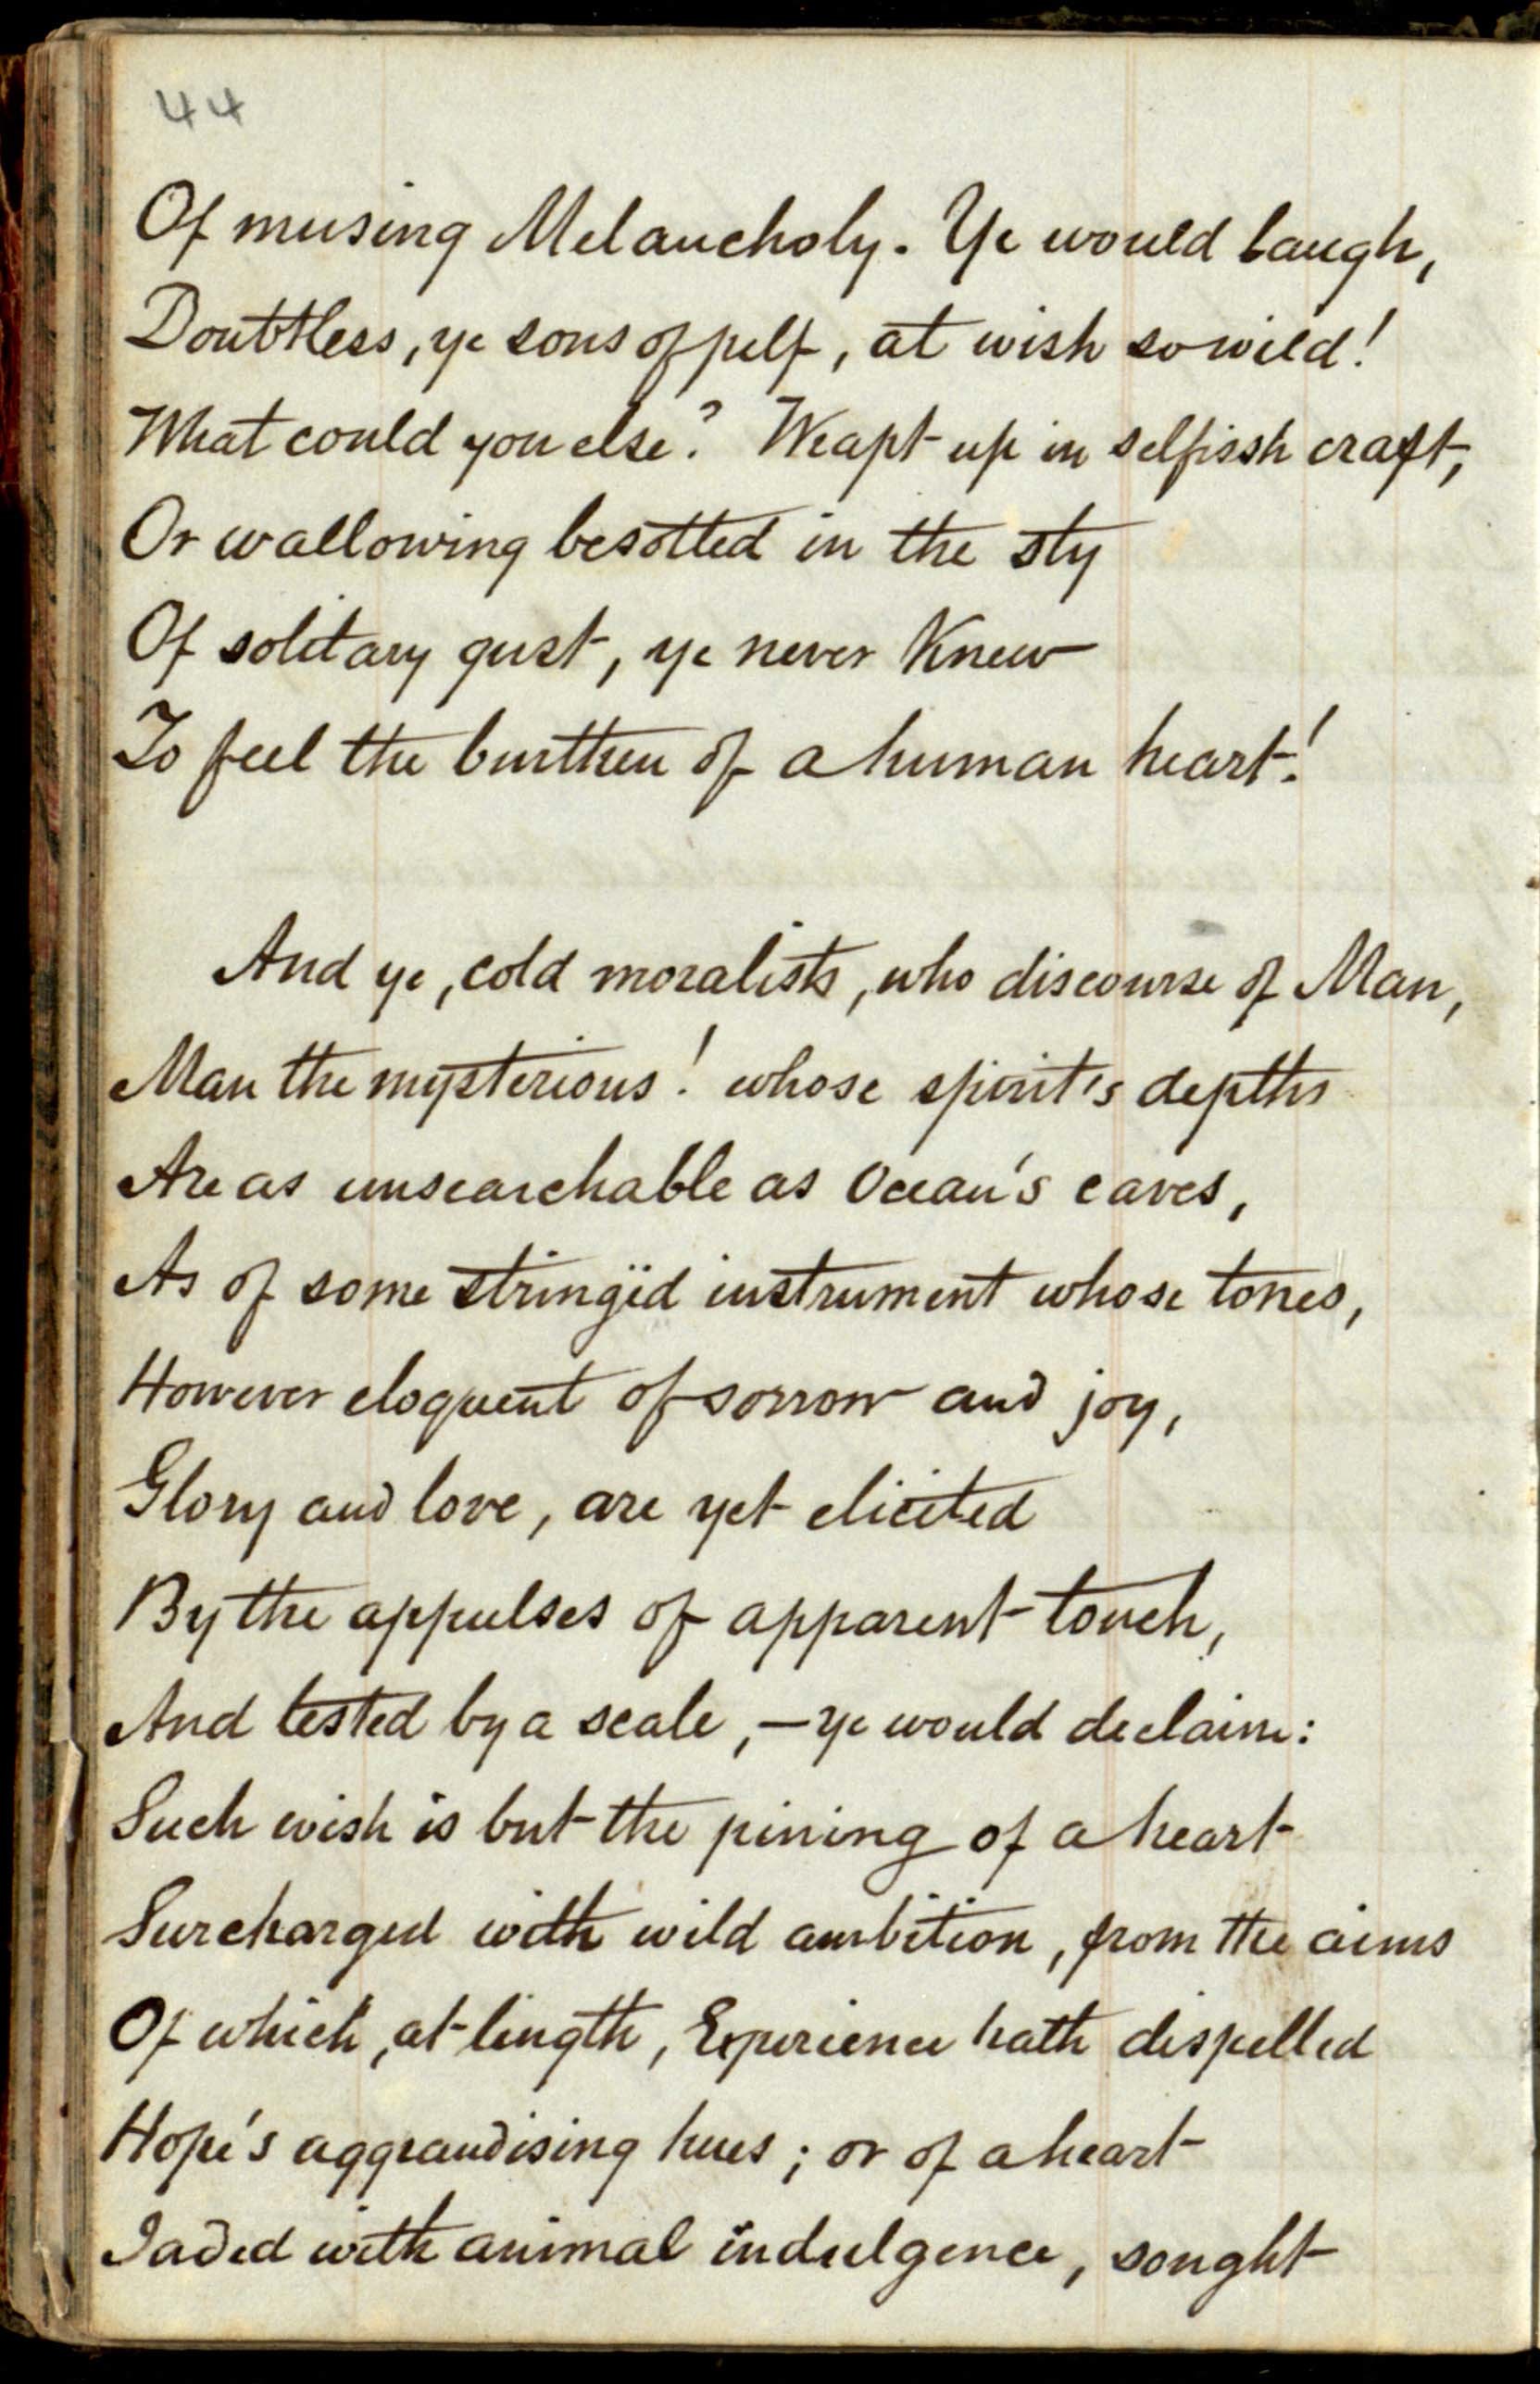 44
Of musing Melancholy. Ye would laugh,
Doubtless, ye sons of pelf, at wish so wild!
What could you else? Wrapt up in selfissh craft,
Or wallowing besotted in the sty
Of solitary gust, ye never knew
To feel the burthen of a human heart!
And ye, cold moralists, who discourse of Man,
Man the mysterious! whose spirit's depths
Are as unsearchable as Ocean's caves,
As of some stringëd instrument whose tones,
However eloquent of sorrow and joy,
Glory and love, are yet elicited
By the appulses of apparent touch,
And tested by a scale, — ye would declaim:
Such wish is but the pining of a heart
Surcharged with wild ambition, from the aims
Of which, at length, Experience hath dispelled
Hope's aggrandising hues; or of a heart
Jaded with animal indulgence, sought